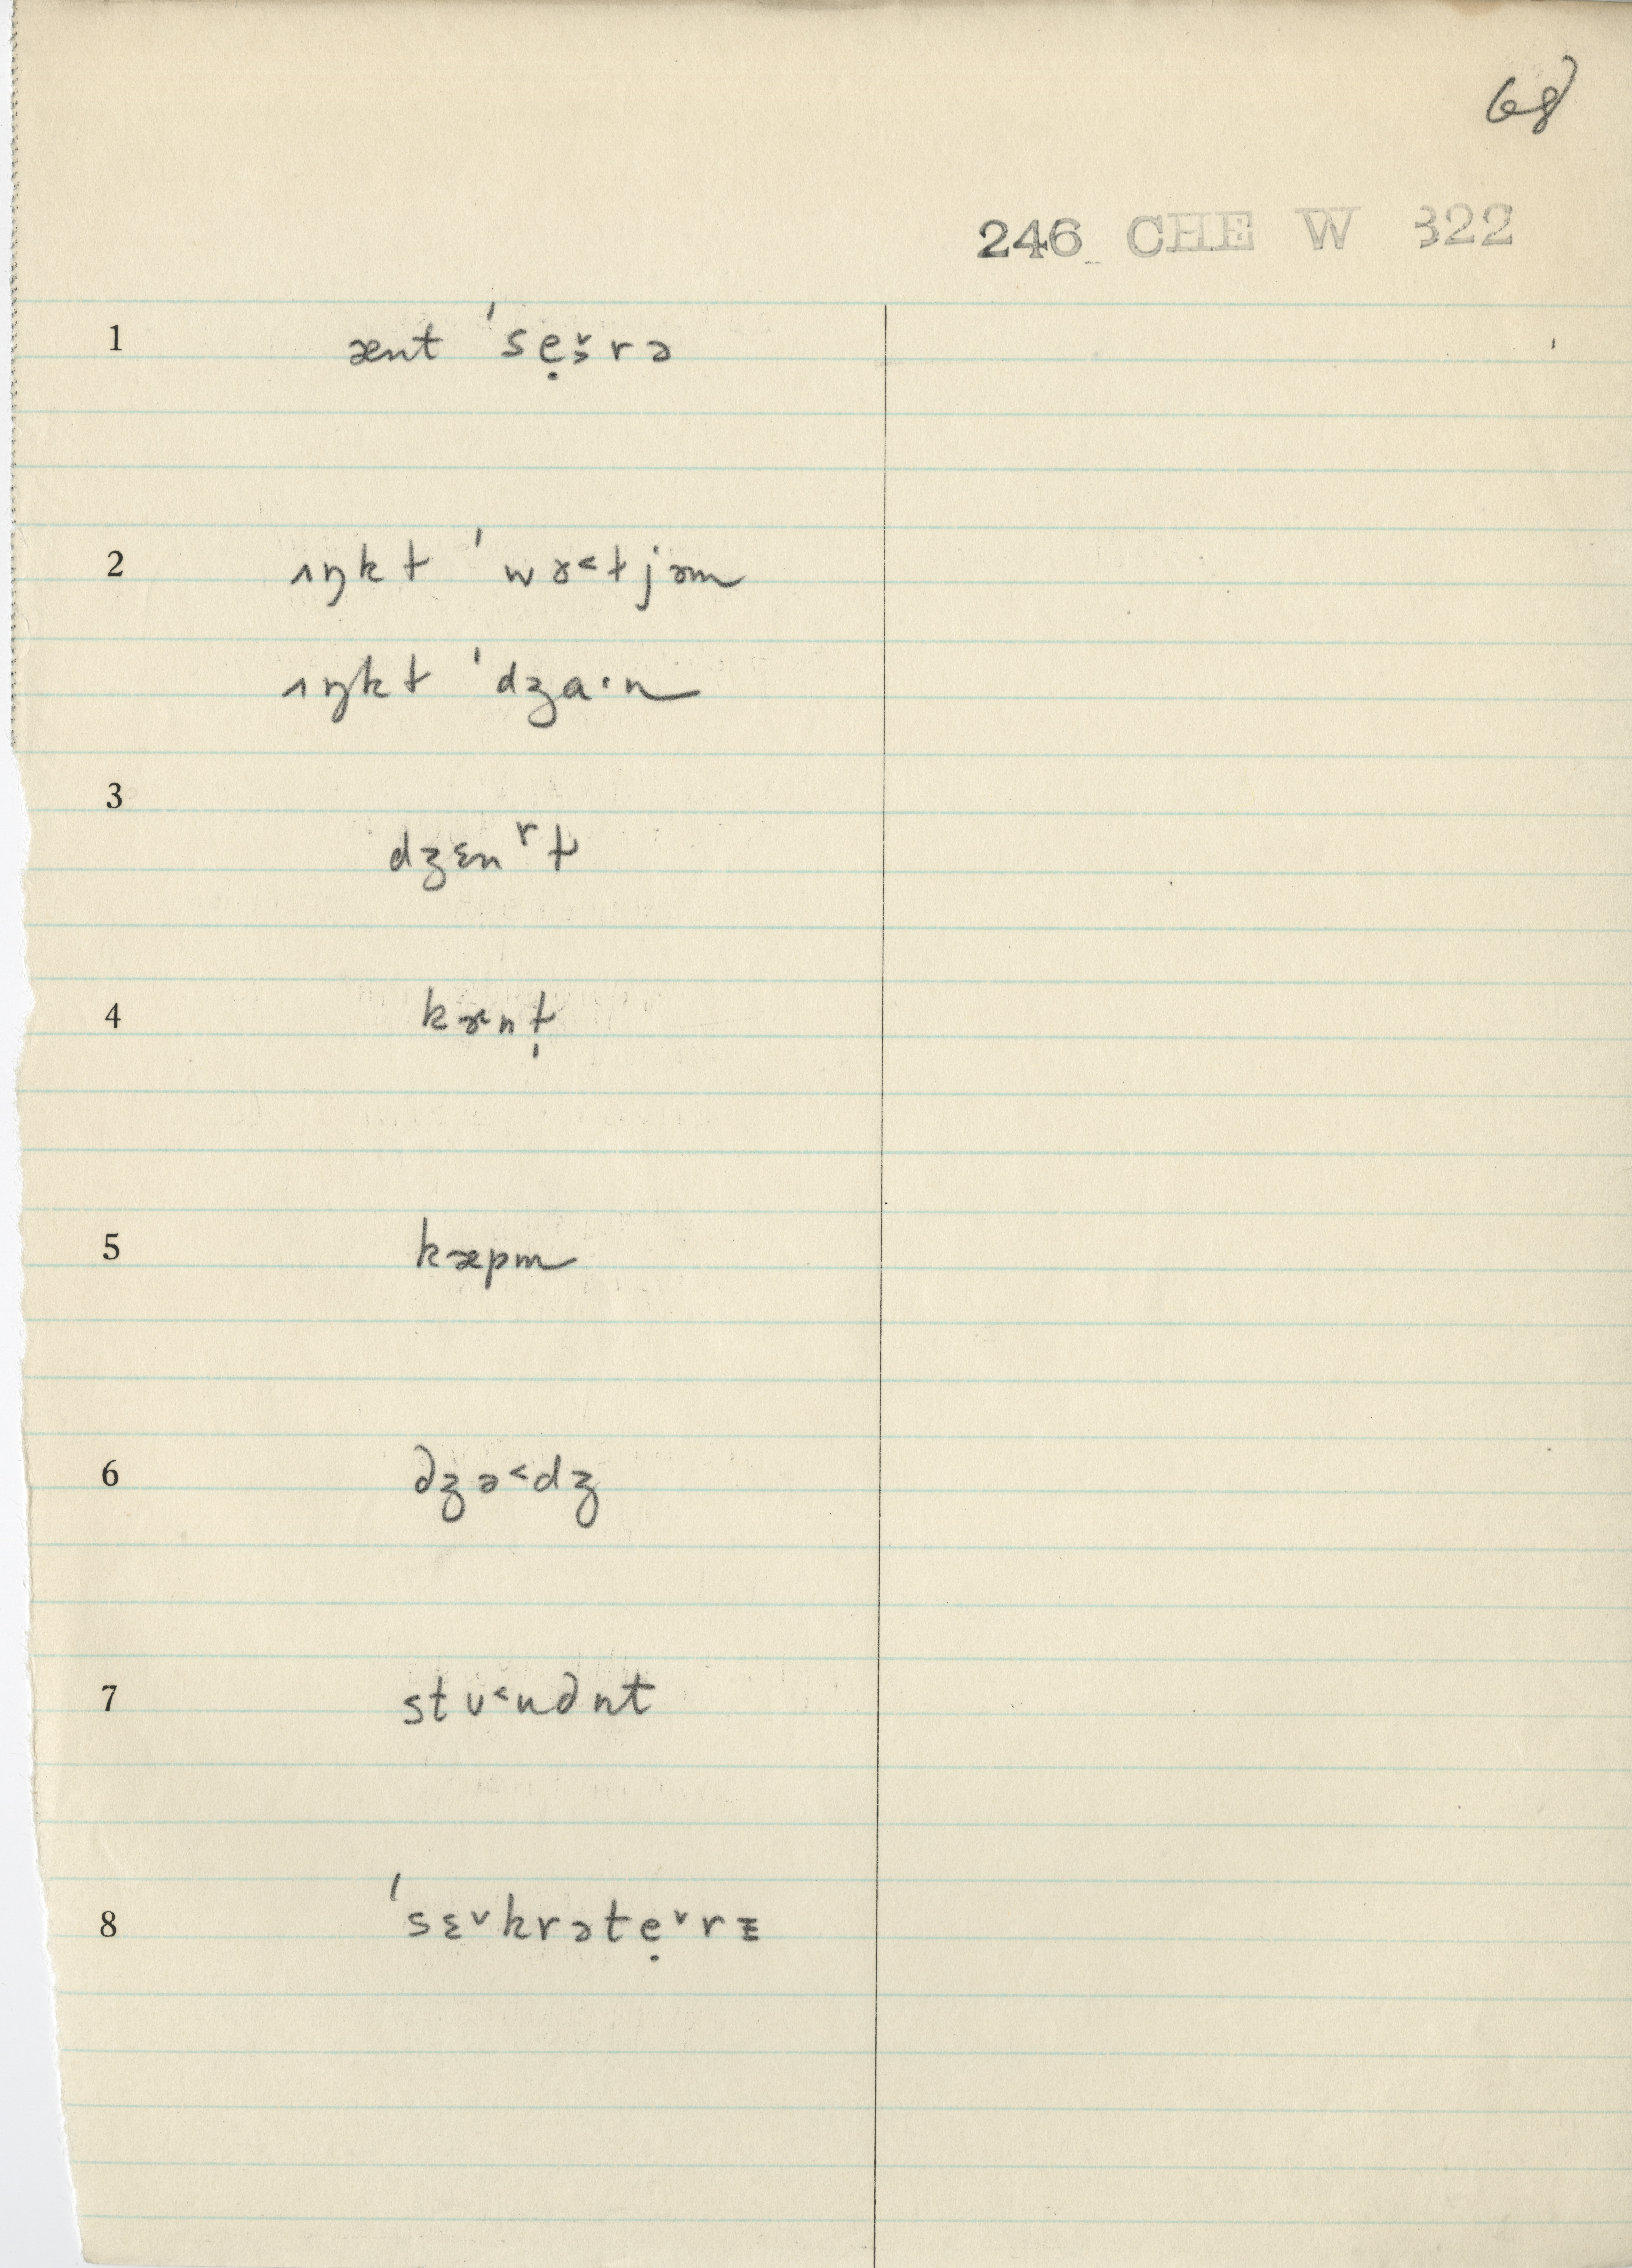 68
246 CHE W 322
1 ænt ˈsẹ˅rə
2 ʌŋkɫ ˈwɤ˂ɫjəm
ʌŋkɫ ˈdʒa·n
3
dʒɛnʳɫ
4 kɤnɫ̩
5 kæpm
6 ∂ʒə˂dʒ
7 stʋ˂u∂nt
8 ˈsɛ˅krətẹ˅rɪ